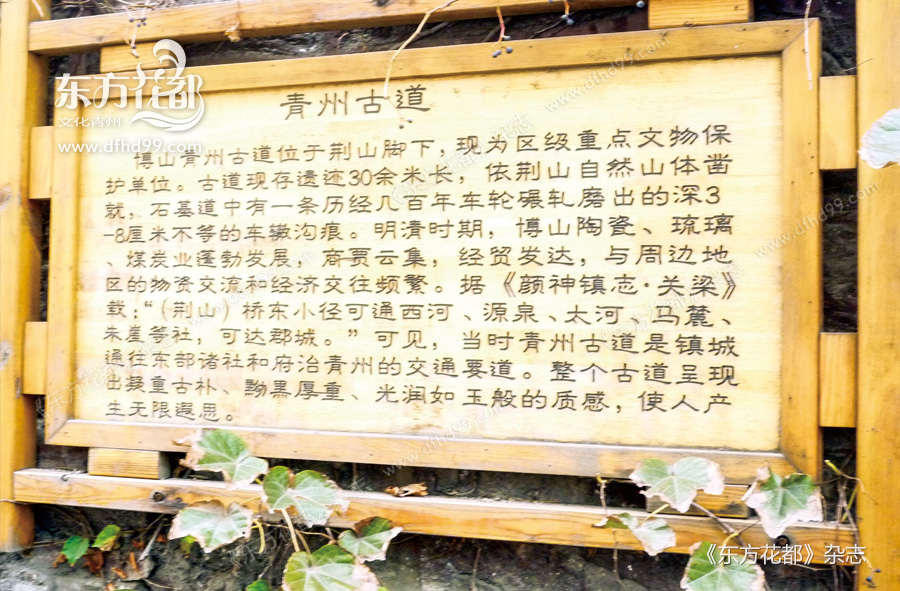 东方花都
文化青州
www.dfhd99.com
青州古道
博山青州古道位于荆山脚下，现为区级重点文物保
护单位。古道现存遗迹30余米长，依荆山自然山体凿
就，石基道中有一条历经几百年车轮碾轧磨出的深3
-8厘米不等的车辙沟痕。明清时期，博山陶瓷、琉璃
、煤炭业蓬勃发展，商贾云集，经贸发达，与周边地
区的物资交流和经济交往频繁。据《颜神镇志·关梁》
载：“（荆山）桥东小径可通西河、源泉、太河、马麓、
朱崖等社，可达郡城。”可见，当时青州古道是镇城
通往东部诸社和府治青州的交通要道。整个古道呈现
出凝重古朴、黝黑厚重、光润如玉般的质感，使人产
生无限遐思。
《东方花都》杂志